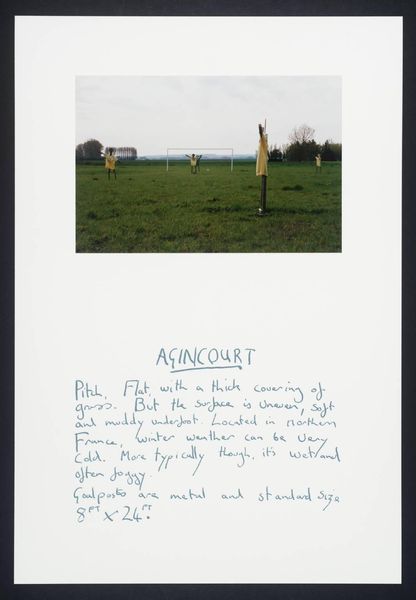 AGINCOURT
Pitch. Flat, with a thick covering of
grass. But the surface is uneven, soft
and muddy underfoot. Located in northern
France, winter weather can be very
cold. More typically though, it's wet and
often foggy.
Goalposts are metal and standard size
8FT x 24FT.